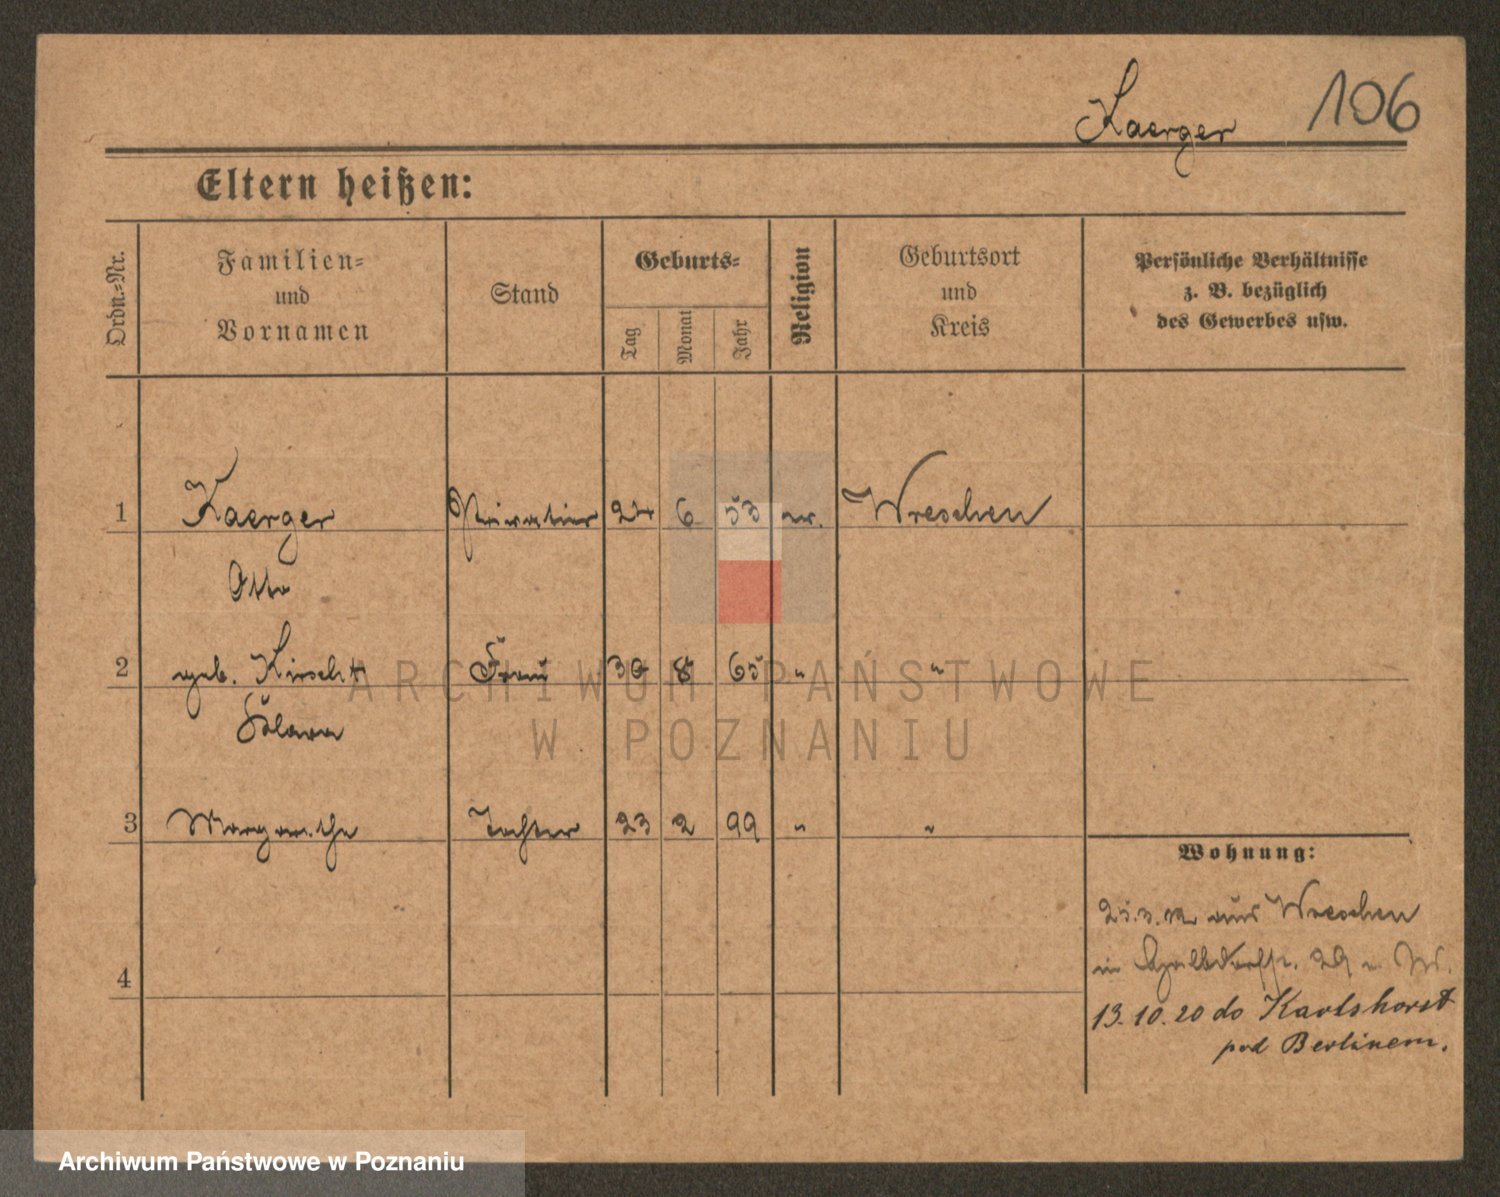 Kaerger 106
Eltern heißen:
Ordn.=Nr.
Familien=
und
Vornamen
Stand
Geburts=
Tag
Monat
Jahr
Religion
Geburtsort
und
Kreis
Persönliche Verhältnisse
z. B. bezüglich
des Gewerbes usw.
1 Kaerger Privatier 24 6 53 ev. Wreschen
Otto
2 geb. Kirscht Frau 30 8 65 " "
3 Margarethe Tochter 23 2 99 " "
Wohnung:
aus Wreschen
in 29
4
13.10.20 do Karlshorst
pod Berlinem.
ARCHIWUM PAŃSTWOWE
W POZNANIU
Archiwum Państwowe w Poznaniu